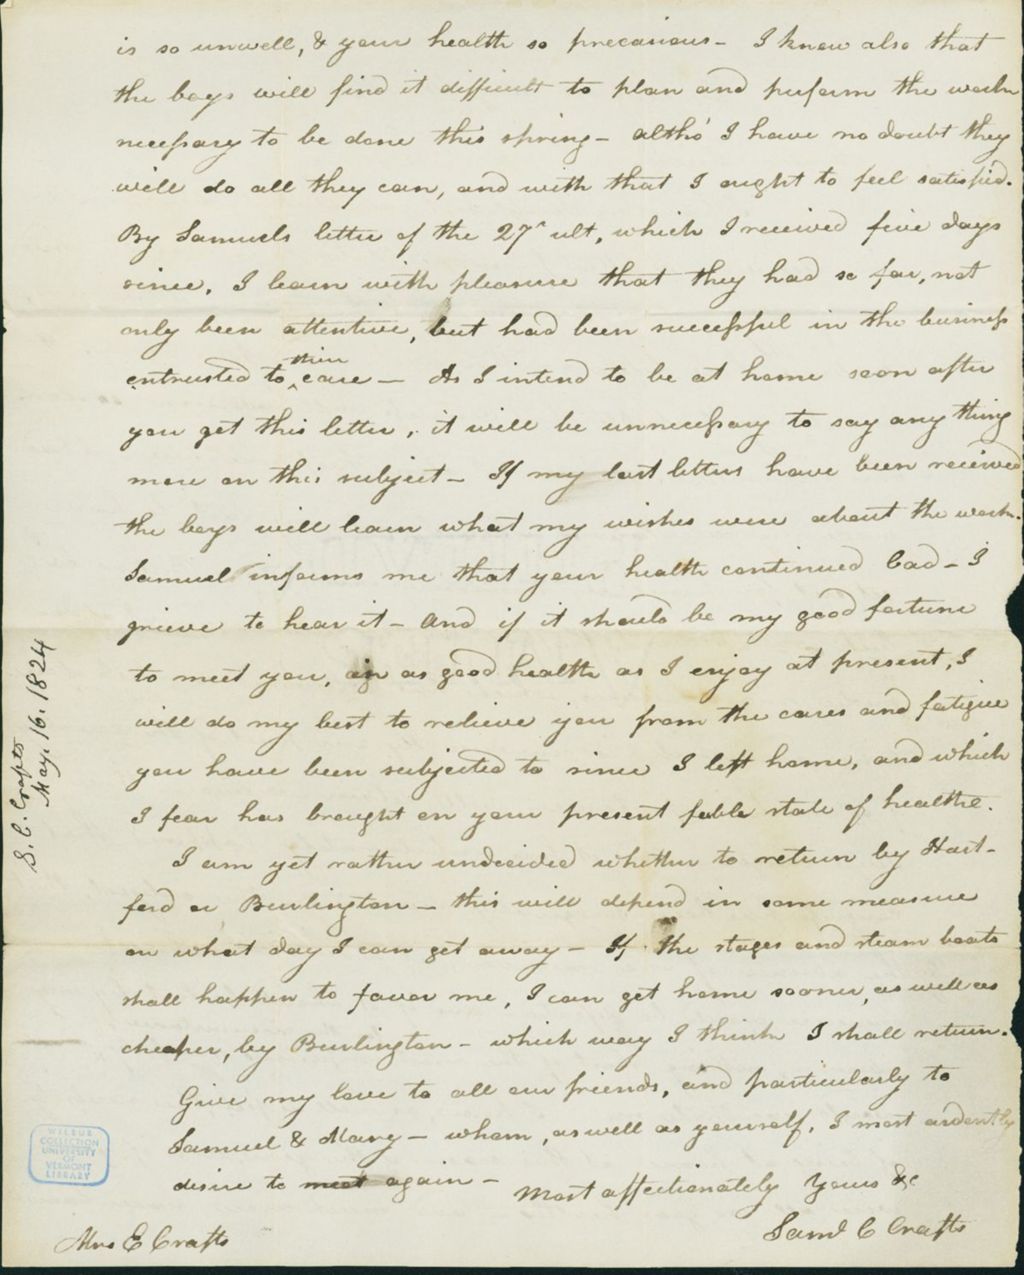 is so unwell, & your health so precarious - I know also that
the boys will find it difficult to plan and perform the work
necessary to be done this spring - altho' I have no doubt they
will do all they can, and with that I ought to feel satisfied.
By Samuels letter of the 27th ult, which I received five days
since, I learn with pleasure that they had so far, not
only been attentive, but had been successful in the business
entrusted to their care - As I intend to be at home soon after
you get this letter, it will be unnecessary to say any thing
more on this subject - If my last letters have been received
the boys will learn what my wishes were about the work.
Samuel informs me that your health continued bad - I
grieve to hear it - And if it should be my good fortune
to meet you, in as good health as I enjoy at present, I
will do my best to relieve you from the cares and fatigue
you have been subjected to since I left home, and which
I fear has brought on your present feble state of healthe.
I am yet rather undecided whether to return by Hart-
ford or Burlington - this will depend in some measure
on what day I can get away - If the stages and steam boats
shall happen to favor me, I can get home sooner, as well as
cheaper, by Burlington - which way I think I shall return.
Give my love to all our friends, and particularly to
Samuel & Mary - whom, as well as yourself, I most ardently
desire to meet again -
Most affectionately Yours &c
Saml C Crafts
Mrs E Crafts
S. C. Crafts
May. 16. 1824
WILBUR
COLLECTION
UNIVERSITY
OF
VERMONT
LIBRARY